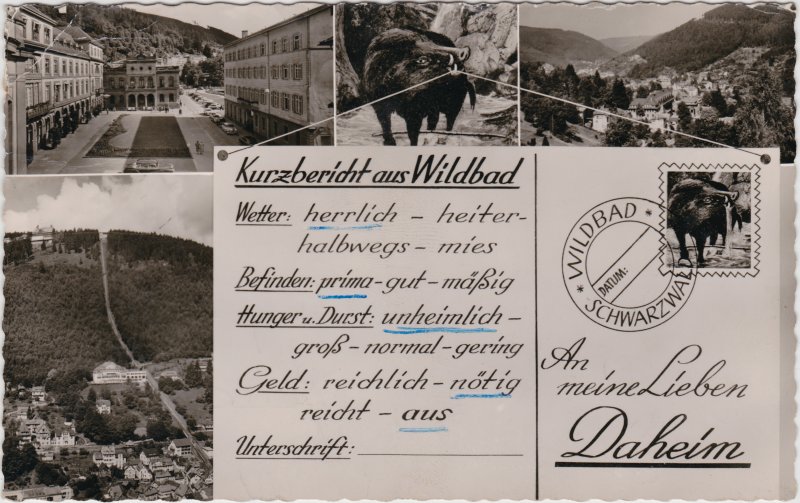 Kurzbericht aus Wildbad
Wetter: herrlich - heiter-
halbwegs - mies
Befinden: prima - gut - mäßig
Hunger u. Durst: unheimlich -
groß - normal - gering
Geld: reichlich - nötig
reicht - aus
Unterschrift:
* WILDBAD *
DATUM:
SCHWARZWALD
An
meine Lieben
Daheim